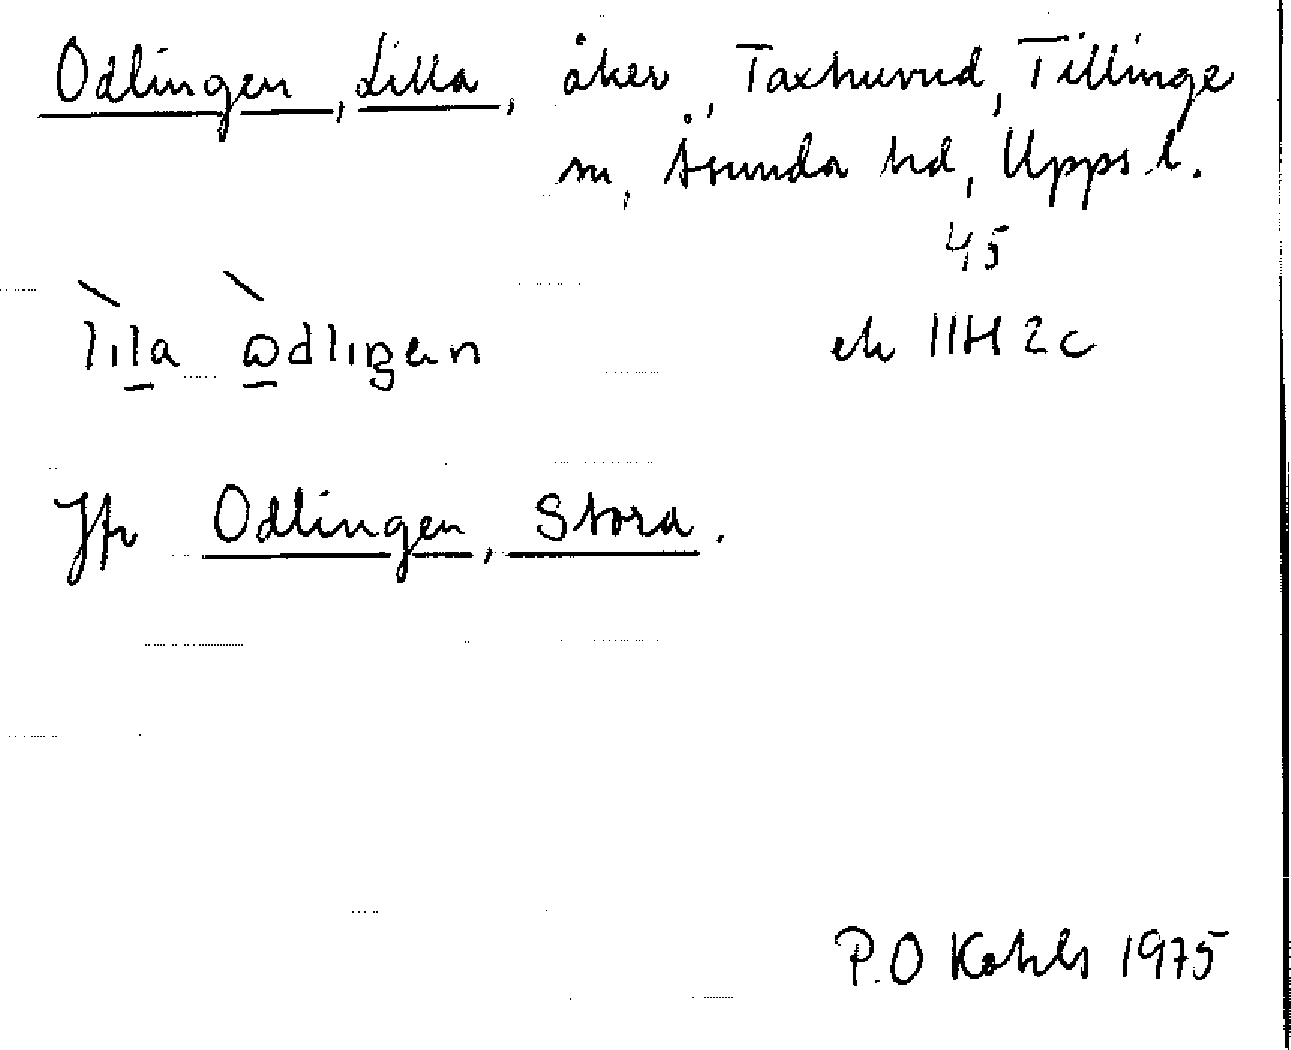 Odlingen, Lilla, åker, Taxhuvud, Tillinge
sn, Åsunda hd, Upps. l.
45
ek 11H 2c
lìla òdlıŋen
Jfr Odlingen, Stora.
P.O Kohls 1975